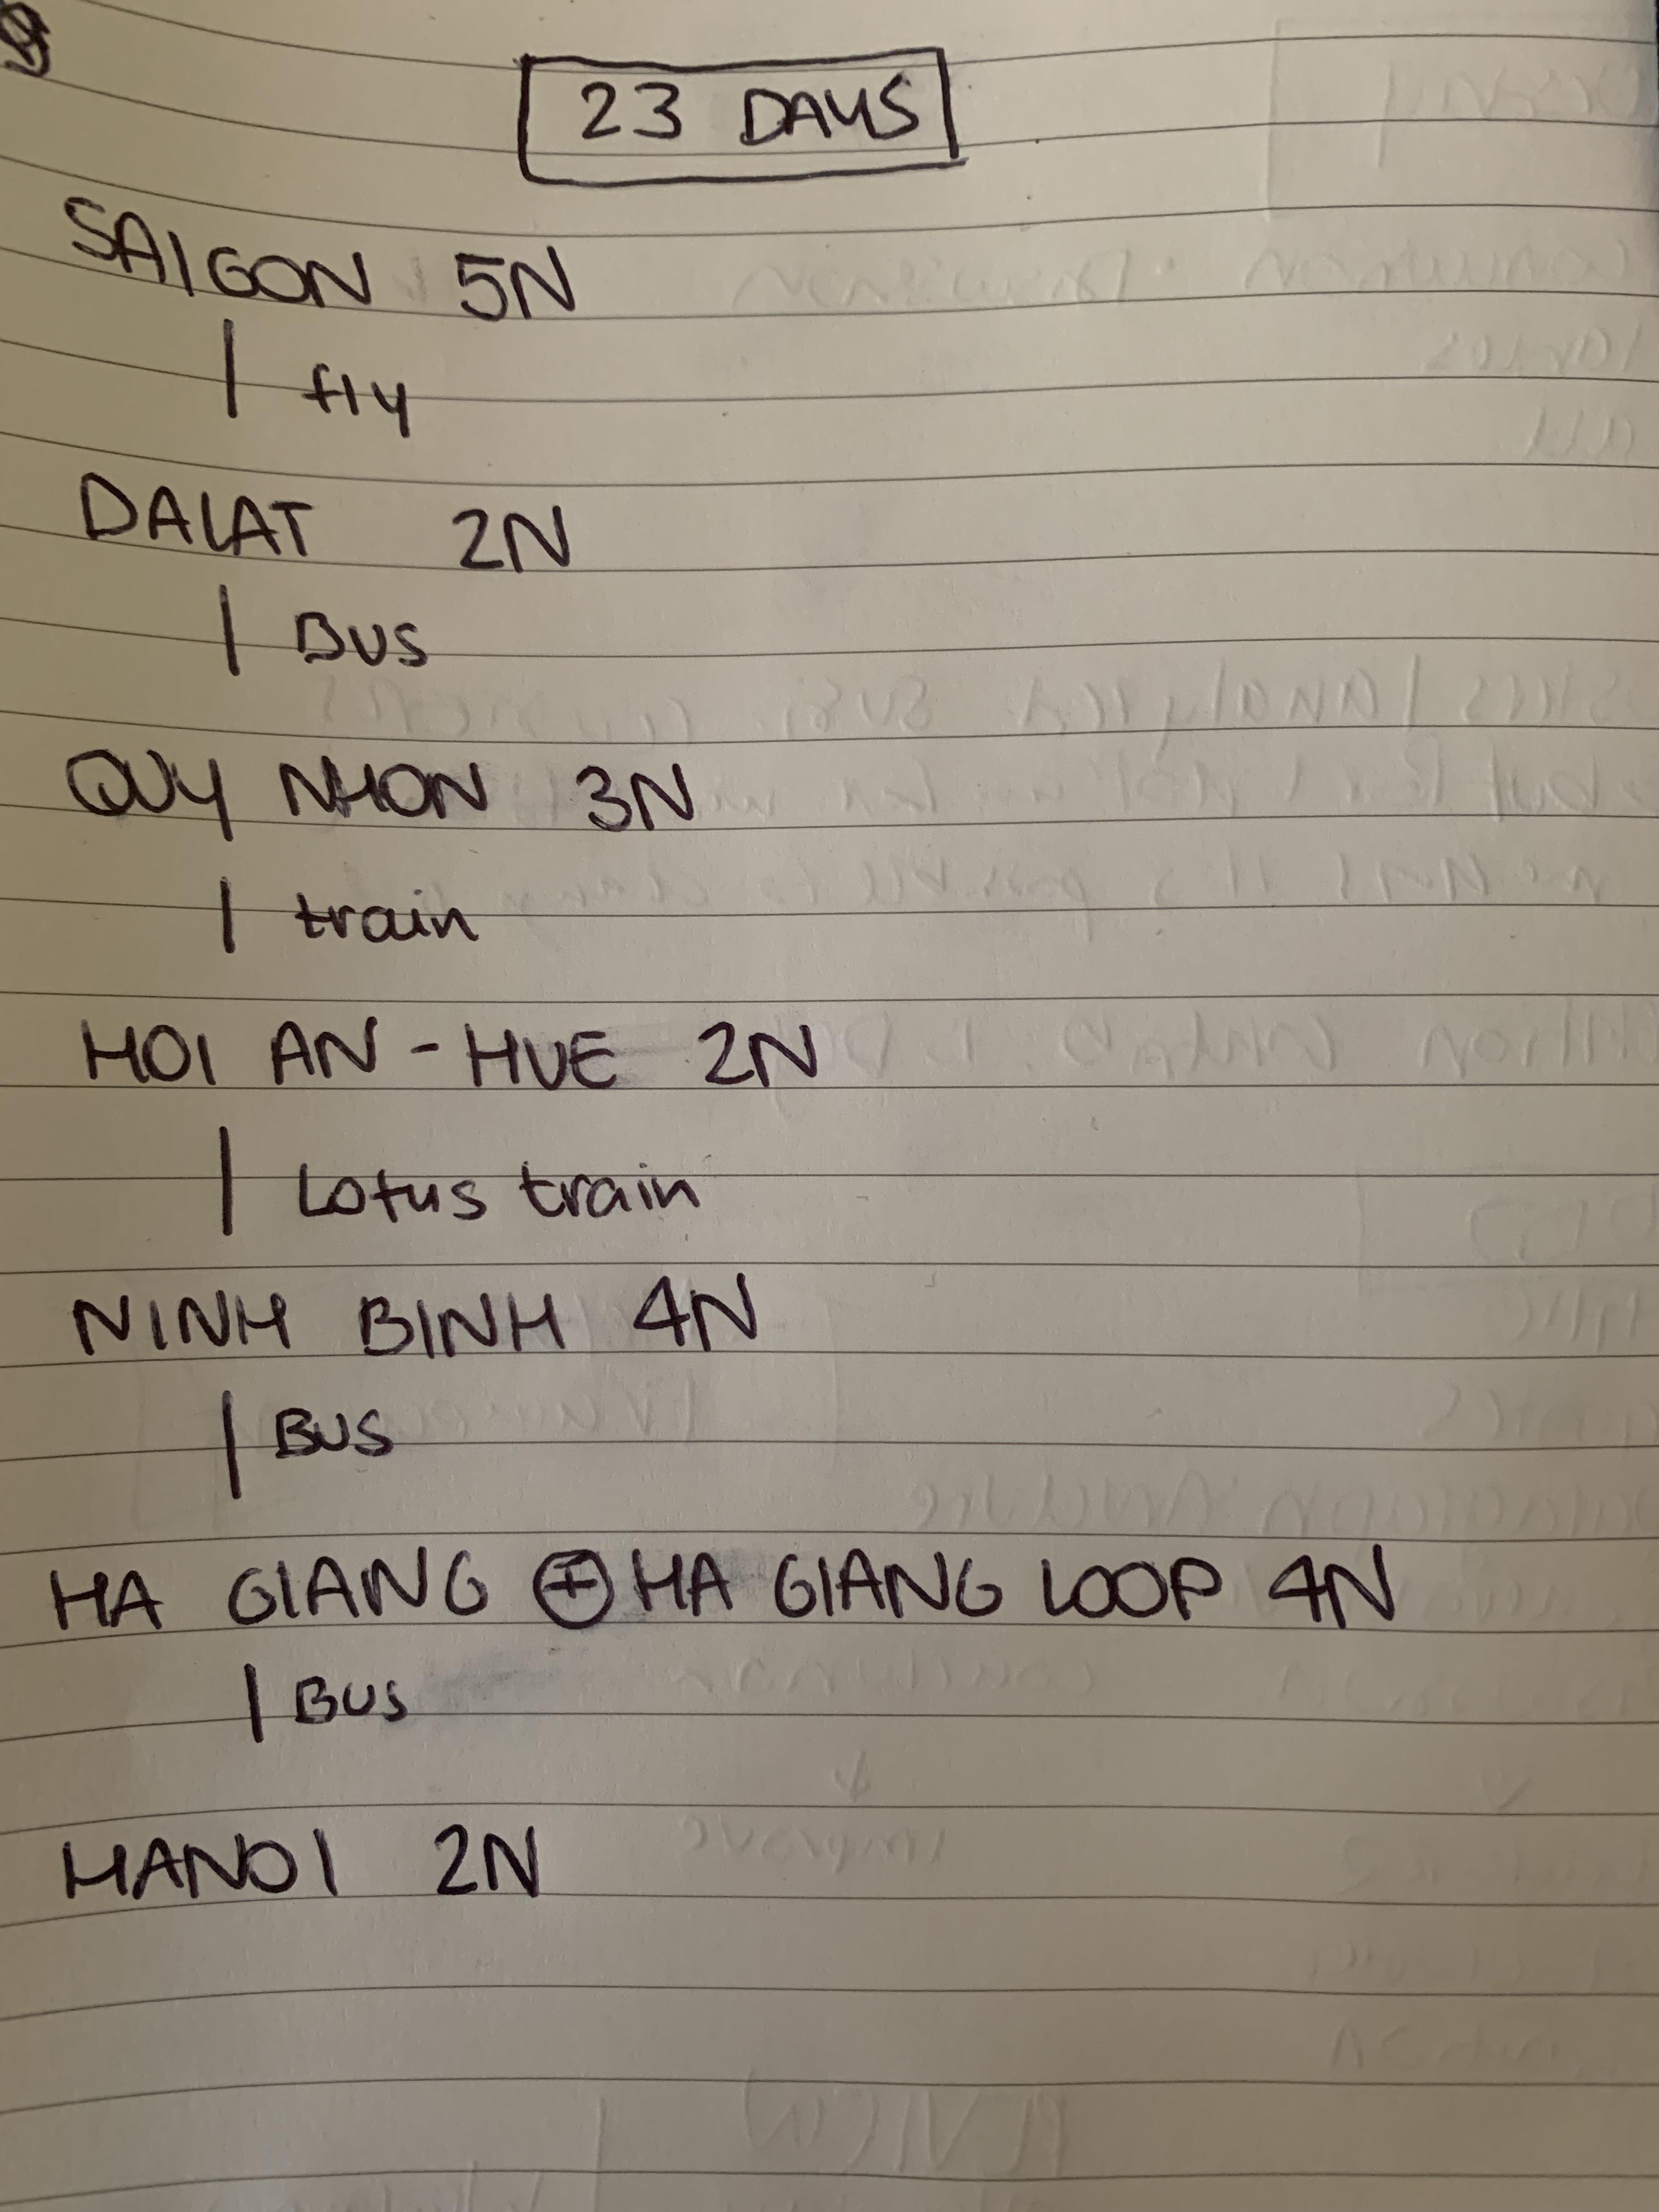 23 DAYS
SAIGON 5N
| fly
DALAT 2N
| BUS
QUY NHON 3N
| train
HOI AN - HUE 2N
| Lotus train
NINH BINH 4N
| BUS
HA GIANG ⊕ HA GIANG LOOP 4N
| BUS
HANOI 2N